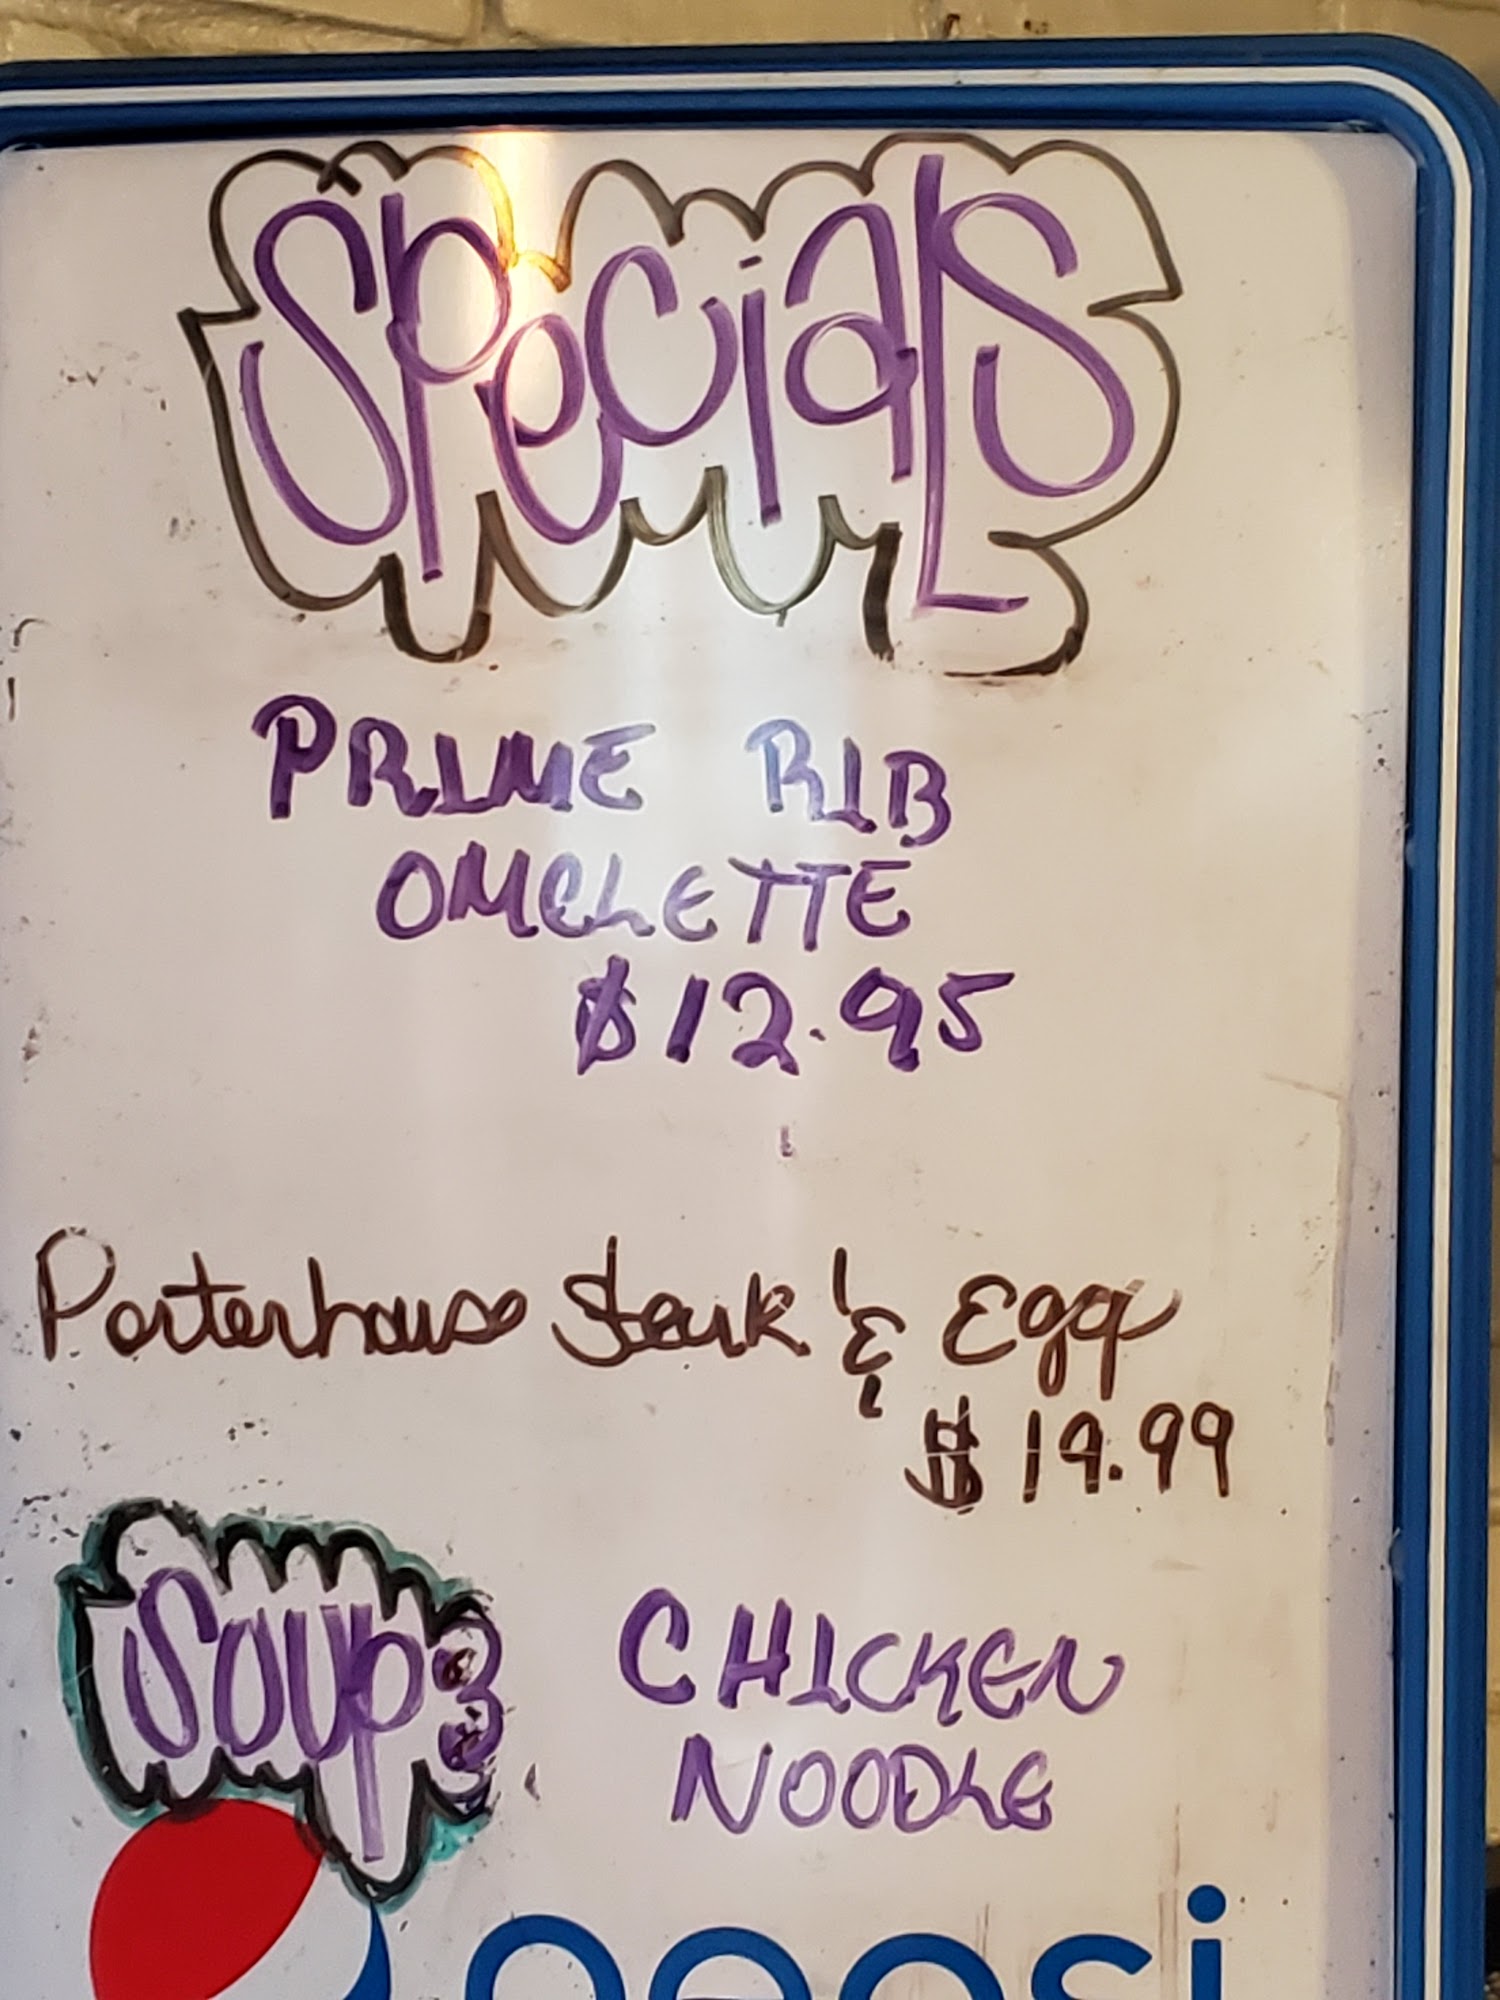 Specials
PRIME RIB
OMELETTE
$12.95
Porterhouse Steak & Egg
$19.99
Soup CHICKEN
NOODLE
pepsi